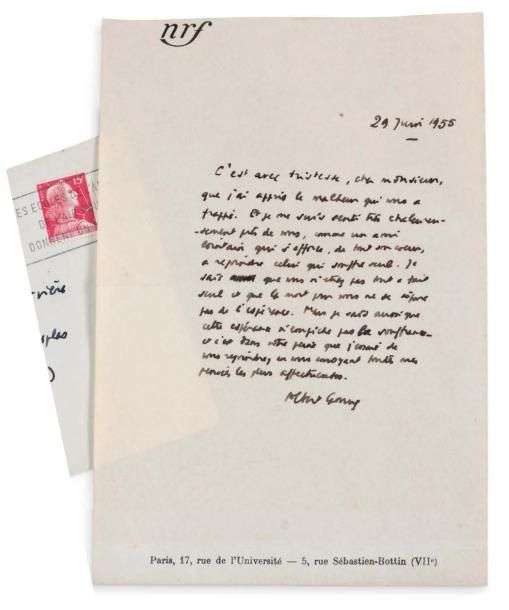 nrf
29 Juin 1955
C'est avec tristesse, cher monsieur,
que j'ai appris le malheur qui vous a
frappé. Et je me suis senti très chaleureu-
sement près de vous, comme un ami
lointain qui s'efforce, de tout son coeur,
à rejoindre celui qui souffre seul. Je
sais que vous n'êtes pas tout à fait
seul et que la mort pour vous ne se sépare
pas de l'espérance. Mais je sais aussi que
cette espérance n'empêche pas la souffrance
et c'est dans votre peine que j'essaie de
vous rejoindre, en vous envoyant toutes mes
pensées les plus affectueuses.
Albert Camus
Paris, 17, rue de l'Université — 5, rue Sébastien-Bottin (VIIe)
15F
DONNENT